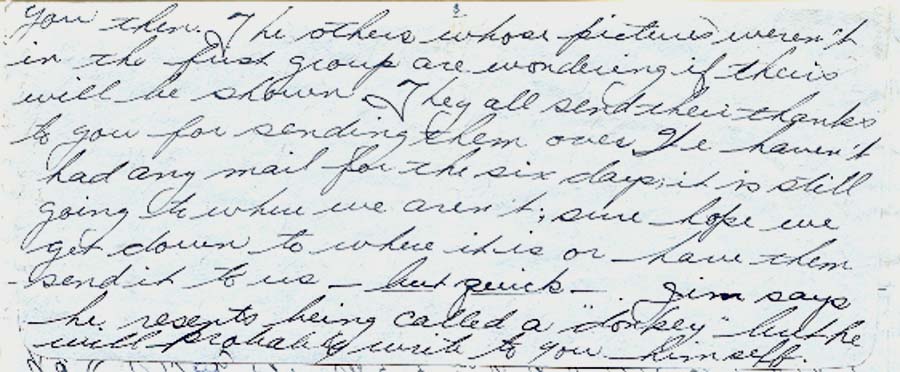 you then. The others whose pictures weren't
in the first group are wondering if theirs
will be shown. They all send their thanks
to you for sending them over. We haven't
had any mail for the six days; it is still
going to where we aren't; sure hope we
get down to where it is or have them
send it to us – but quick – . Jim says
he resents being called a "donkey" but he
will probably write to you himself.